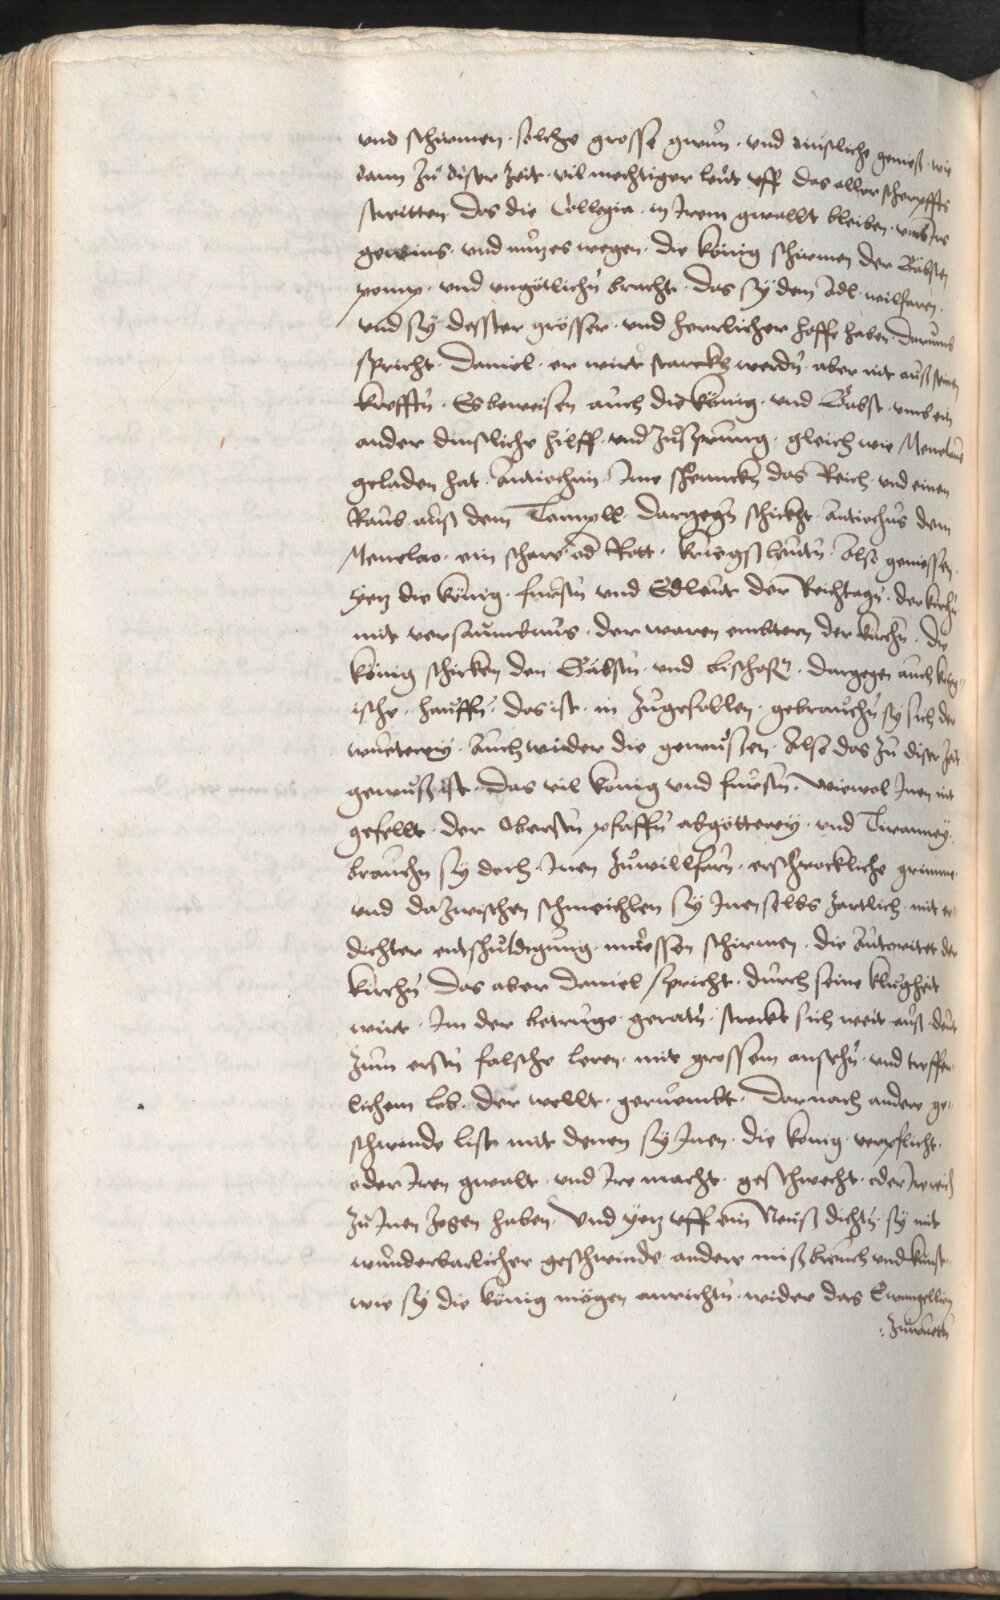 vnd schirmen · solche grosse gwin̄ · vnd nutzliche genieß · wie
dann zů diser zeit · vil mechtiger leüt vff das aller scherpffts
streitten das die Collegia · in Jrem gwallt bleiben · vmb Jrs
gewins · vnd nutzes wegen · die könig schirmen der Bäbsten
pomp · vnd vngötlichn̄ bracht · das sÿ dem Adl · wilfaren ·
vnd sÿ dester grösser · vnd herrlicher hoffe haben · Darumb
spricht · Daniel · er wirt starckh werdn̄ · aber nit auß seinen
krefftn̄ · Es beweisen auch die könig · vnd Babst · vmb ein
ander dinstliche hilff · vnd zůsprung · gleich wie Menelaus
geladen hat · Antiochum · Jme schennckn̄ das Reich · vnd einen
Raub auß dem Tempell · Dargegn̄ schickht · Antiochus dem
Menelao · ein schare od̄ Rott · kriegßleütn̄ · Also geniessen
yetz die könig · fürstn̄ vnd Edleüt der Reichtagn̄ · der kirchn̄
mit versaumbnus · der waren embtern der kirchn̄ · die
könig schicken den Bäbstn̄ · vnd bischofn̄ · dargegen auch krieg-
ische · hauffn̄ · das ist · in zůgefallen · gebrauchn̄ sÿ sich der
wueterey · Auch wider die gewissen · Also das zů diser zeit
gewiß ist · Das vil könig vnd fürstn̄ · Wiewol Jnen nit
gefellt · der Obersten pfaffn̄ abgötterey · vnd Tiranney ·
brauchn̄ sÿ doch · Jnen zůwillfarn̄ · erschrockliche grimme
vnd dazwischen schmeichlen sÿ Jnen selbs zartlich · mit er-
dichter entschuldigung · müessen schirmen · die Autoritet der
kirchn̄ · Das aber Daniel spricht · durch seine klugheit
wirt · Jm der betruge geratn̄ · streckt sich weit auß · dan̄
zum erstn̄ falsche leren · mit grossem ansehn̄ · vnd treffen-
lichem lob · der wellt · geruembt · Darnach andere ge-
schwinde list · mit denen sÿ Jnen · die könig · verpflicht ·
oder Jren gwalt · vnd Jre macht · geschwecht · oder Jre reich
zů Jnen zogen haben · Vnd yetz vff ein Neuß dichtn̄ sÿ mit
wunderbarlicher geschwinde andere mißbreuch vnd künst ·
wie sÿ die könig mögen anrichtn̄ · wider das Ewangelliom
· zuwuetn̄